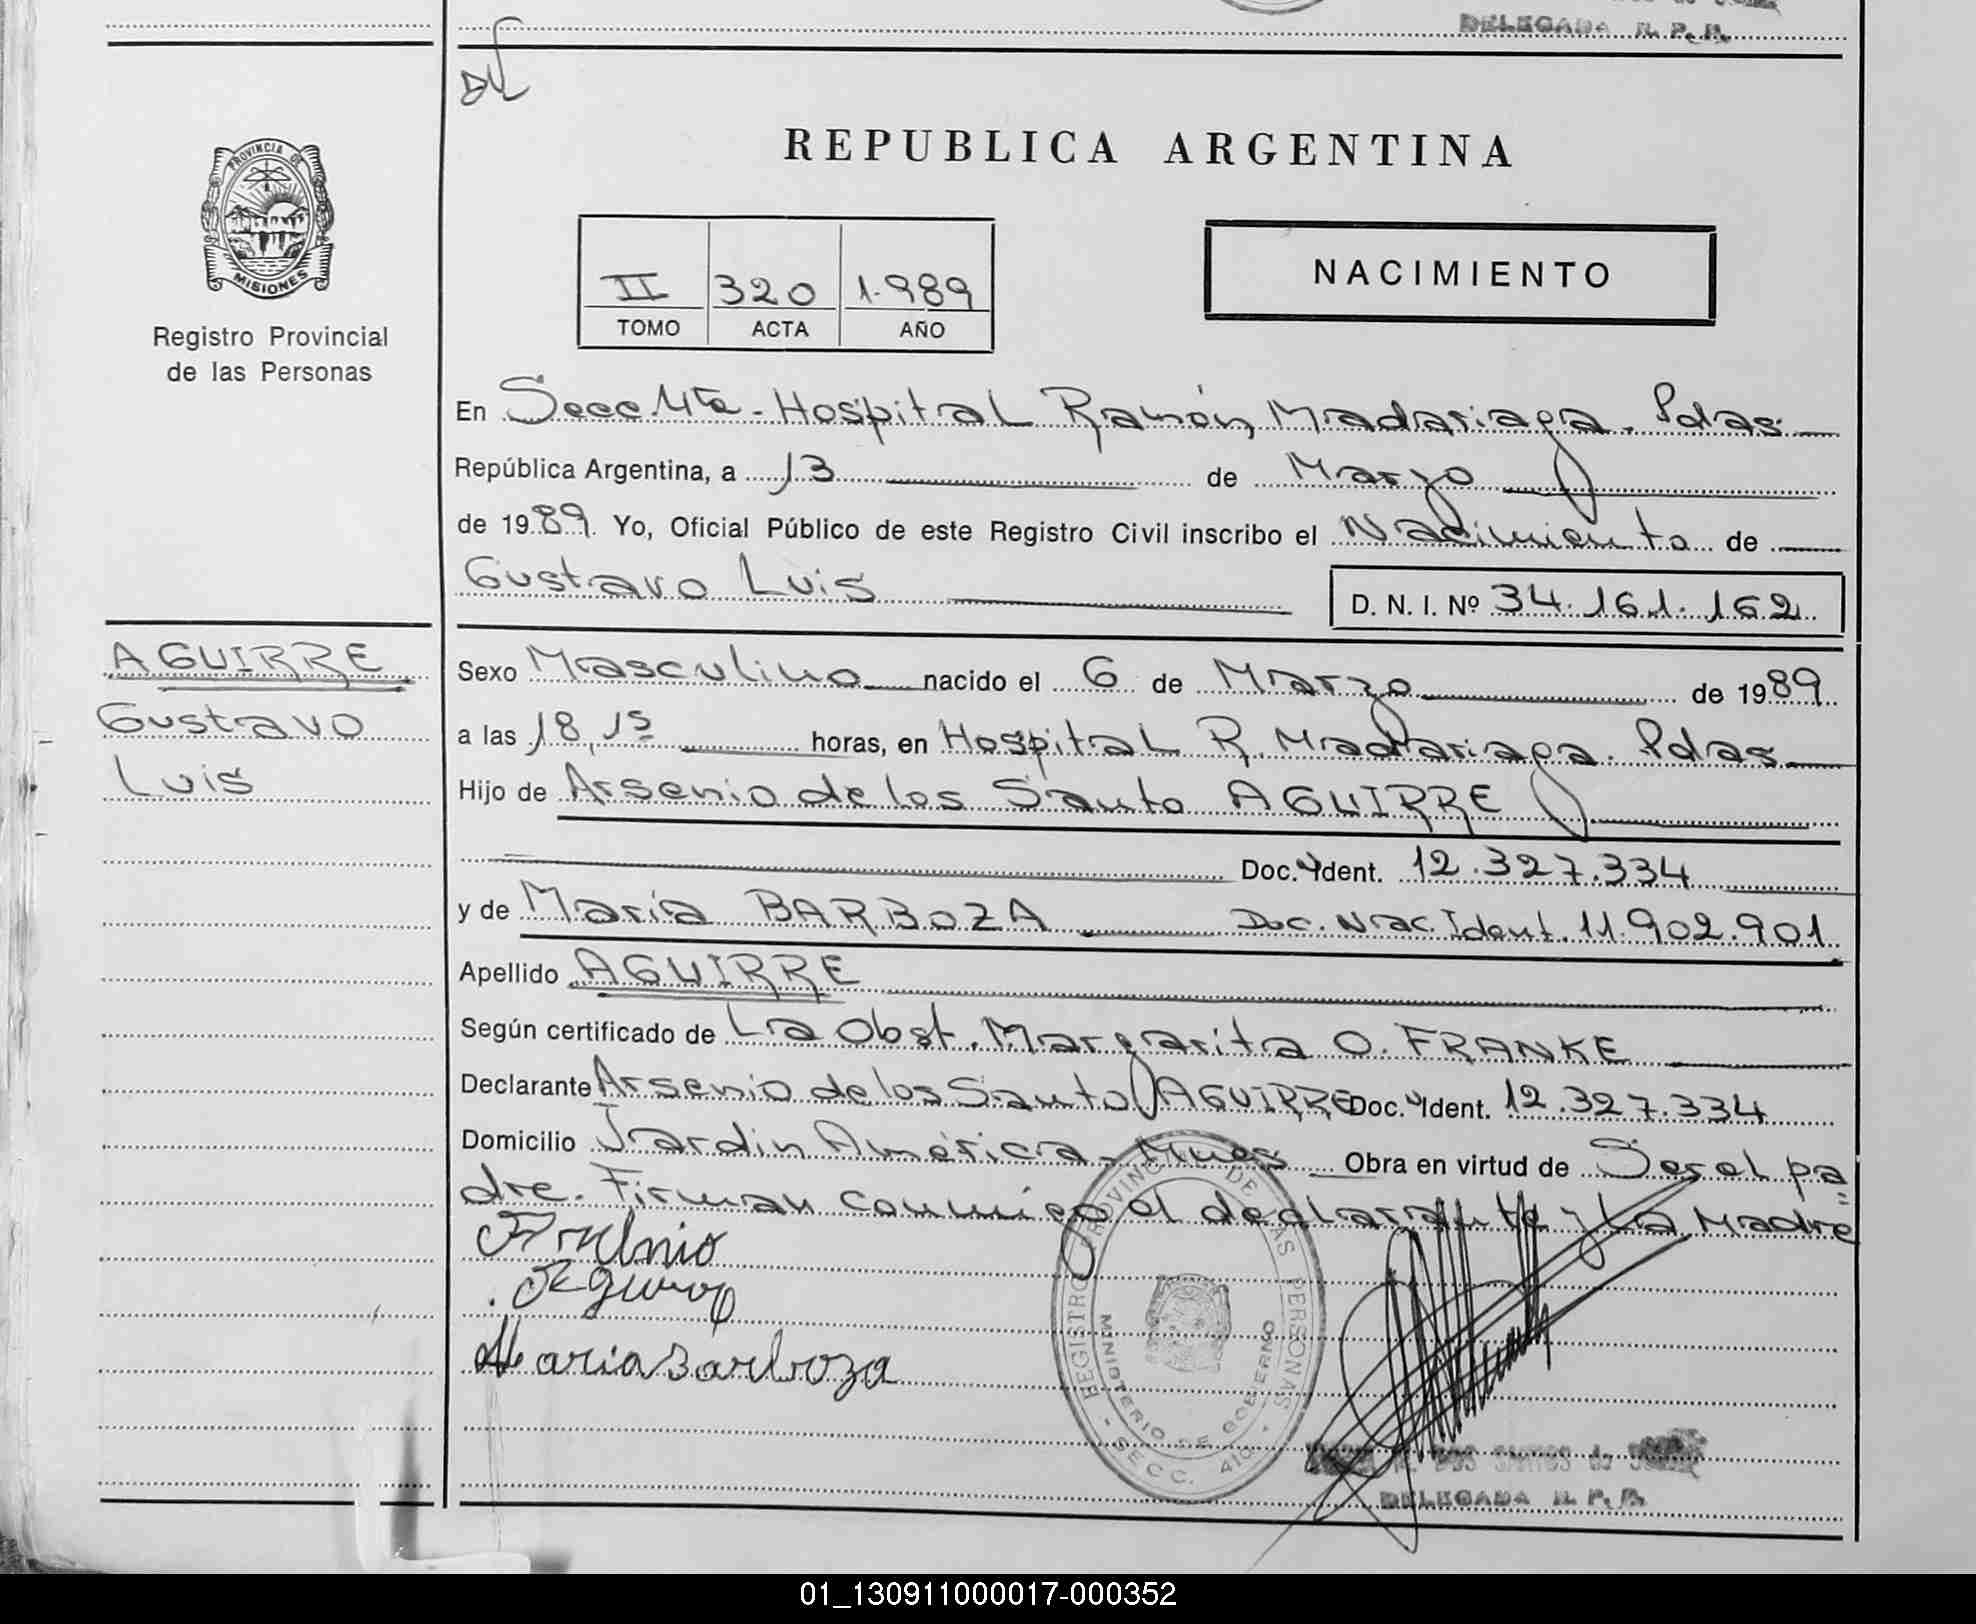 DELEGADA R. P. P.
REPUBLICA ARGENTINA
PROVINCIA DE
MISIONES
Registro Provincial
de las Personas
II 320 1.989
TOMO ACTA AÑO
NACIMIENTO
En Secc. 4ta - Hospital Ramón Madariaga. Pdas
República Argentina, a 13 de Marzo
de 1989. Yo, Oficial Público de este Registro Civil inscribo el Nacimiento de
Gustavo Luis D. N. I. Nº 34.161.162
AGUIRRE
Gustavo
Luis
Sexo Masculino nacido el 6 de Marzo de 1989
a las 18,15 horas, en Hospital R. Madariaga. Pdas
Hijo de Arsenio de los Santo AGUIRRE
Doc. Ident. 12.327.334
y de María BARBOZA Doc. Nac. Ident. 11.902.901
Apellido AGUIRRE
Según certificado de La Obst. Margarita O. FRANKE
Declarante Arsenio de los Santo AGUIRRE Doc. Ident. 12.327.334
Domicilio Jardin América - Mnes Obra en virtud de Ser el pa=
dre. Firman conmigo el declarante y la Madre
Arsenio
Aguirre
Maria Barboza
REGISTRO PROVINCIAL DE LAS PERSONAS
MINISTERIO DE GOBIERNO
- SECC. 410 -
DOS SANTOS de
DELEGADA R. P. P.
01_130911000017-000352